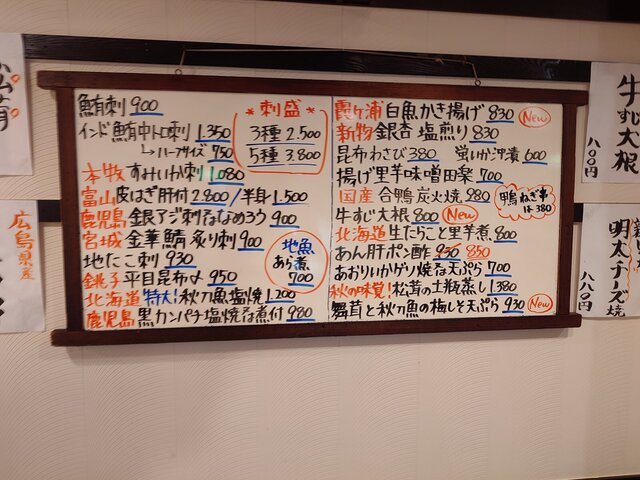 鮪刺 900
インド鮪中トロ刺 1.350
↳ハーフサイズ 750
本牧 すみいか刺 1.080
富山 皮はぎ肝付 2.800/半身 1.500
鹿児島 銀アジ刺 なめろう 900
宮城 金華鯖 炙り刺 900
地たこ刺 930
銚子 平目昆布〆 950
北海道 特大!秋刀魚塩焼 1.200
鹿児島 黒カンパチ塩焼 煮付 980
* 刺盛 *
3種 2.500
5種 3.800
地魚
あら煮
700
霞ヶ浦 白魚かき揚げ 830 New
新物 銀杏 塩煎り 830
昆布わさび 380 蛍いか沖漬 600
揚げ里芋味噌田楽 700
国産 合鴨炭火焼 980
鴨ねぎ串
1本 380
牛すじ大根 800 New
北海道 生たらこと里芋煮 800
あん肝ポン酢 930 850
あおりいかゲソ焼 天ぷら 700
秋の味覚! 松茸の土瓶蒸し 1.380
舞茸と秋刀魚の梅しそ天ぷら 930 New
牛すじ大根
八〇〇円
明太チーズ焼
八八〇円
広島県産